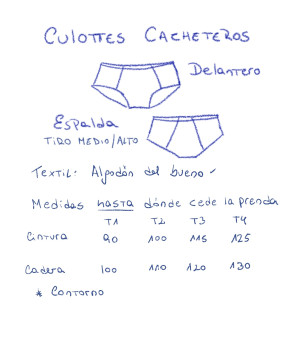 CULOTTES CACHETEROS
DELANTERO
ESPALDA
TIRO MEDIO/ALTO
TEXTIL: Algodón del bueno
Medidas hasta dónde cede la prenda
T1 T2 T3 T4
Cintura 90 100 115 125
Cadera 100 110 120 130
* CONTORNO